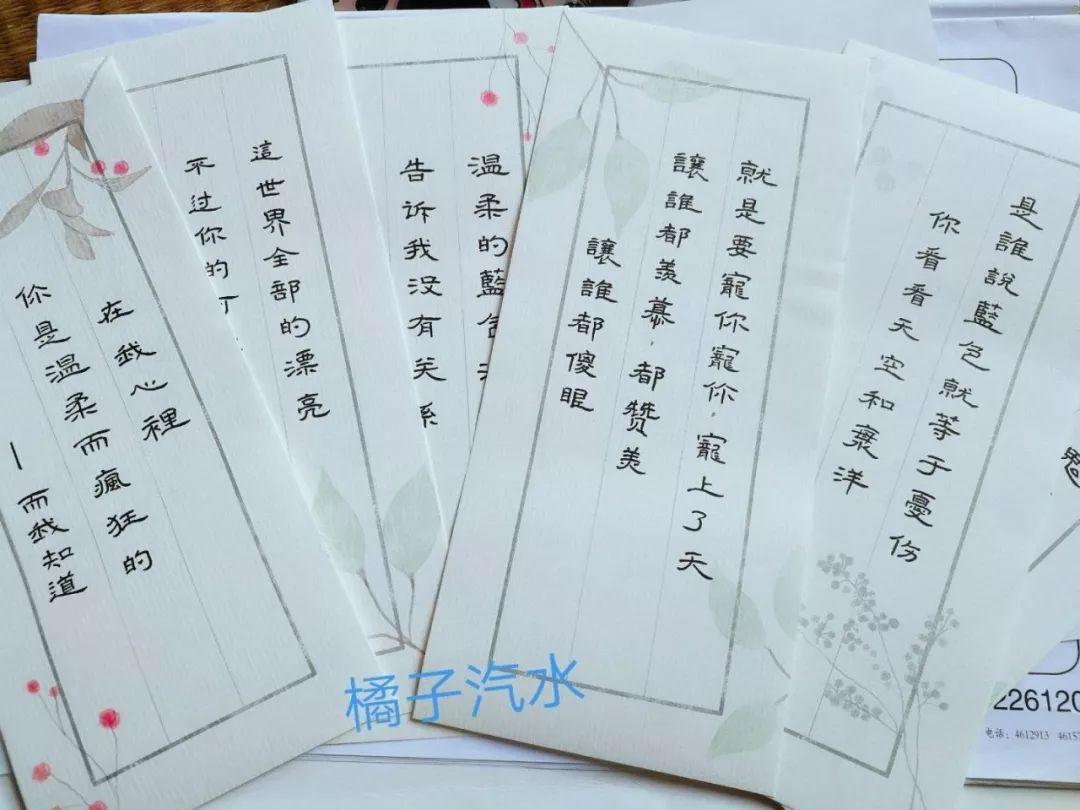 在我心裡
你是温柔而瘋狂的
—而我知道
這世界全部的漂亮
不过你的可
温柔的藍色
告诉我没有关系
就是要寵你寵你，寵上了天
讓誰都羡慕，都赞美
讓誰都傻眼
是誰說藍色就等于憂伤
你看看天空和洋
橘子汽水
226120
电话：4612913 4615